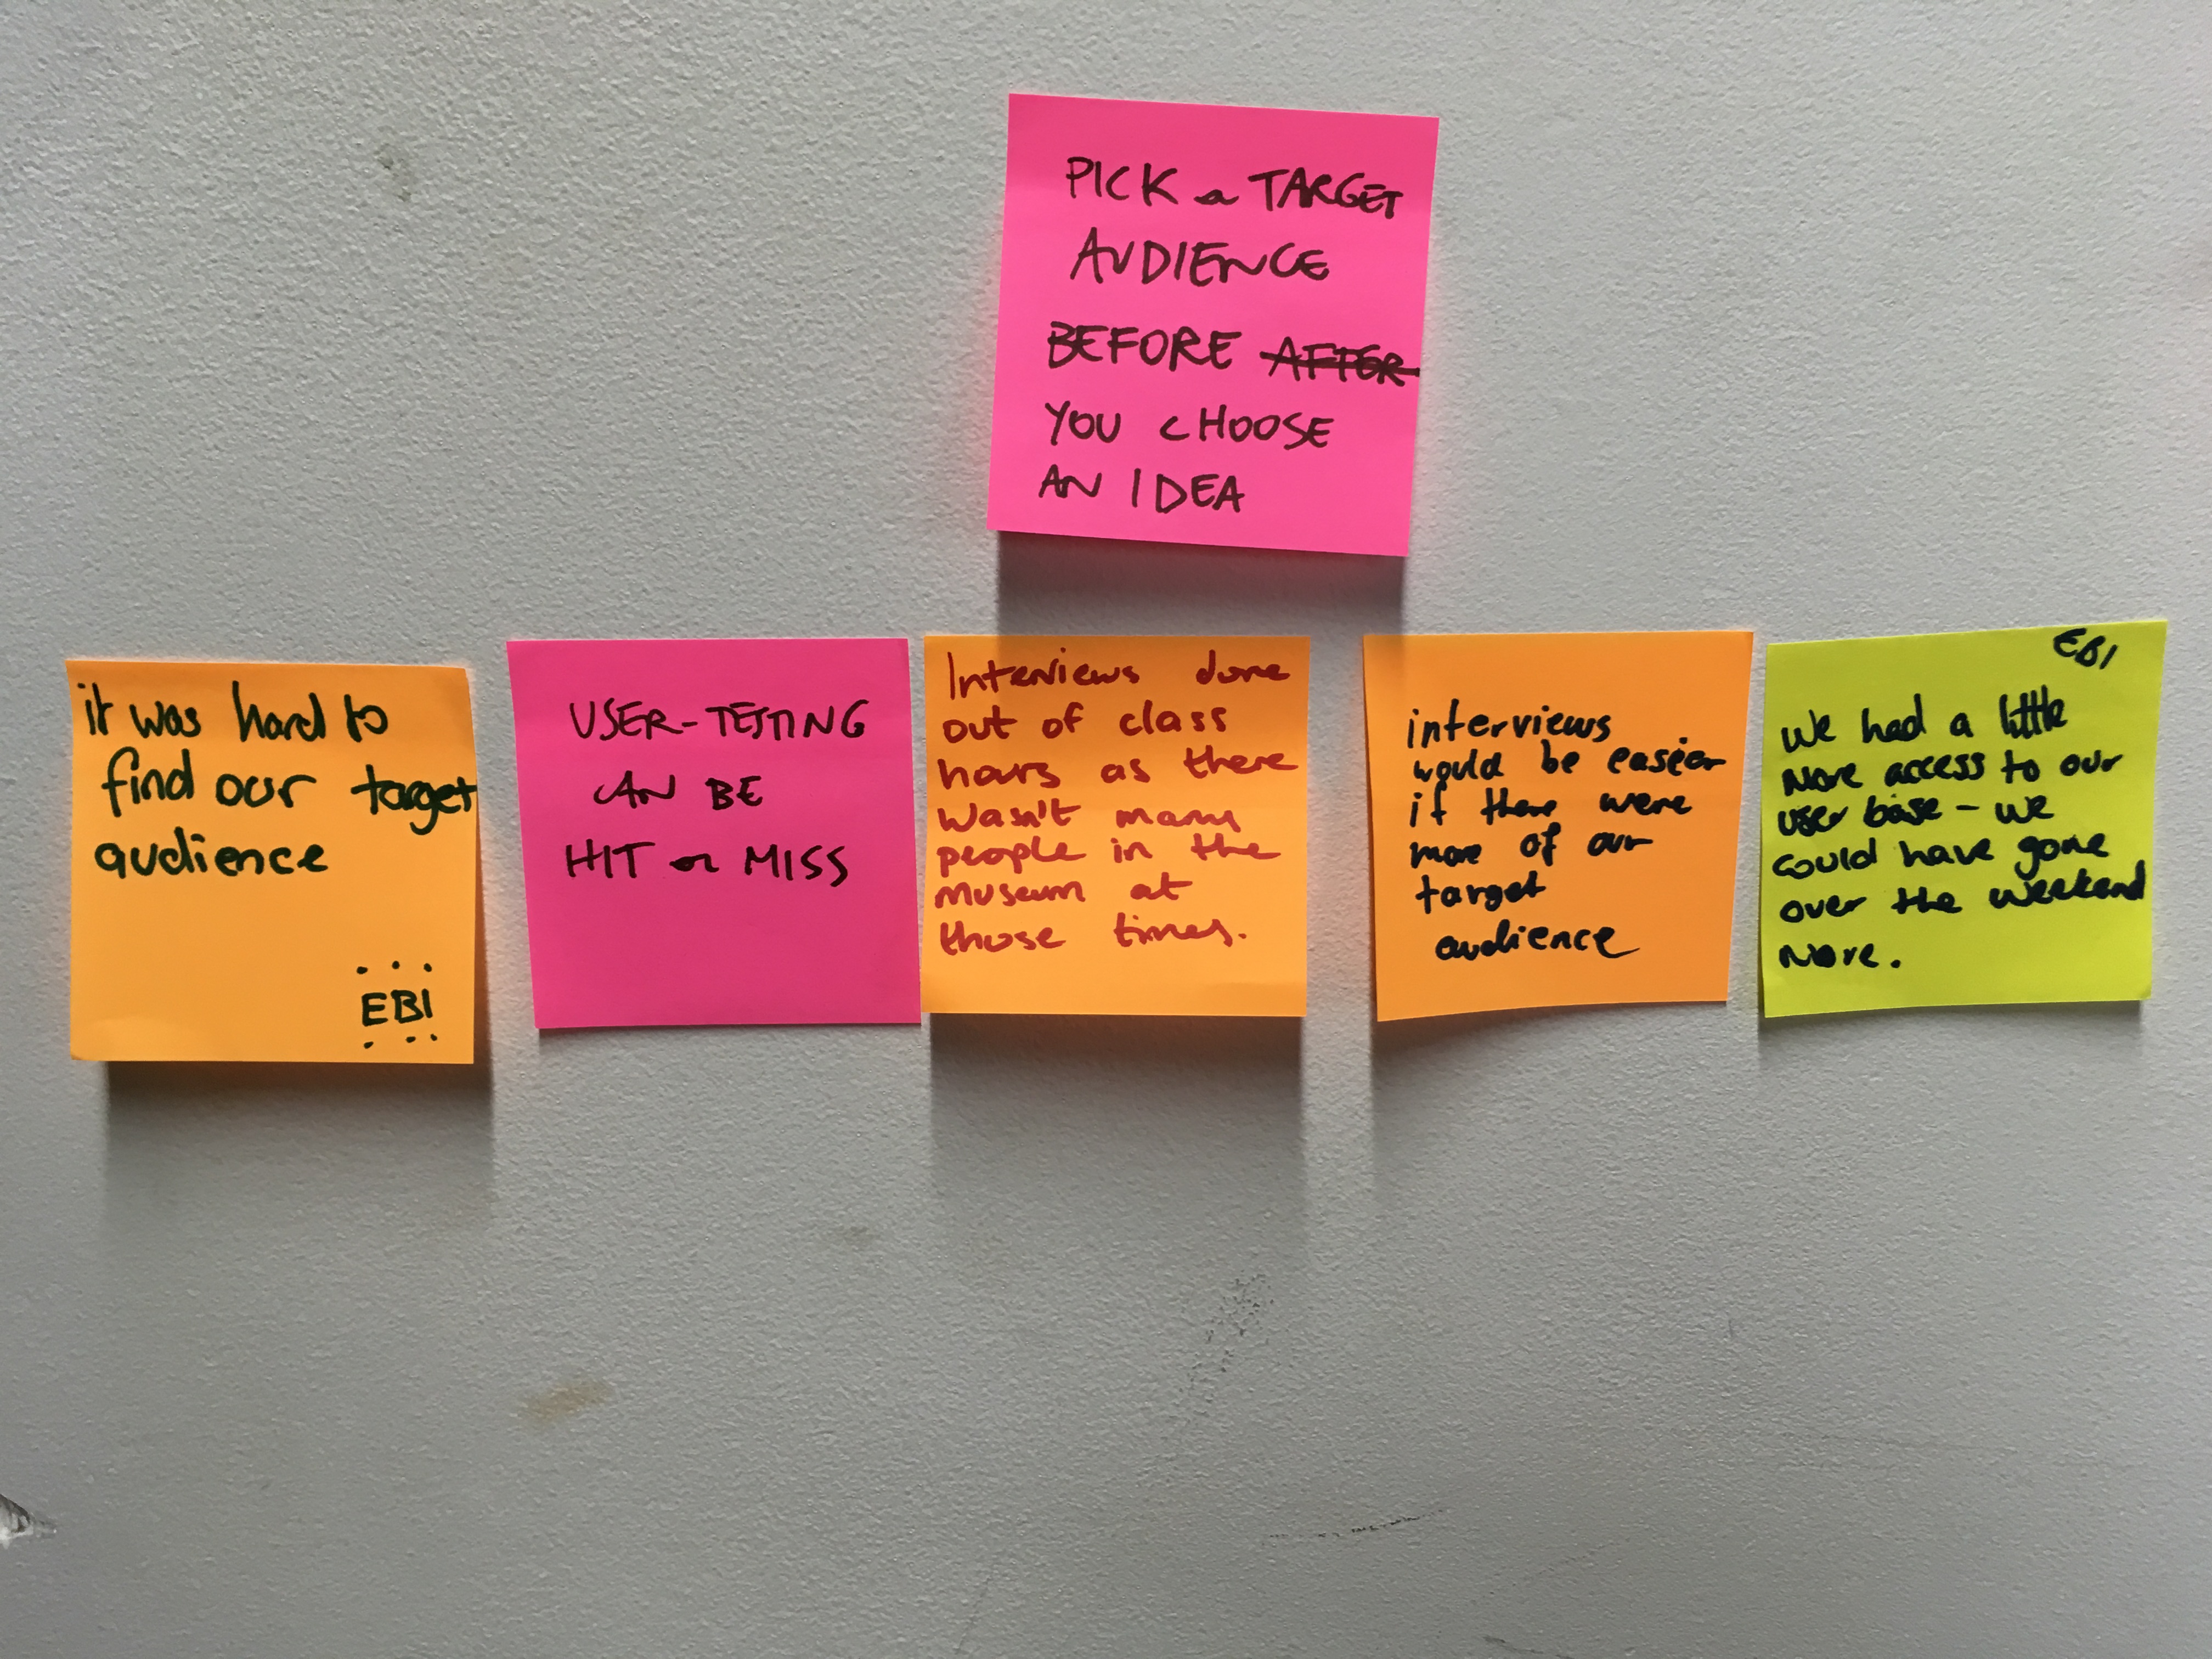 PICK a TARGET
AUDIENCE
BEFORE AFTER
YOU CHOOSE
AN IDEA
it was hard to
find our target
audience
EBI
USER-TESTING
CAN BE
HIT or MISS
Interviews done
out of class
hours as there
wasn't many
people in the
museum at
those times.
interviews
would be easier
if there were
more of our
target
audience
EBI
We had a little
more access to our
user base - we
could have gone
over the weekend
more.